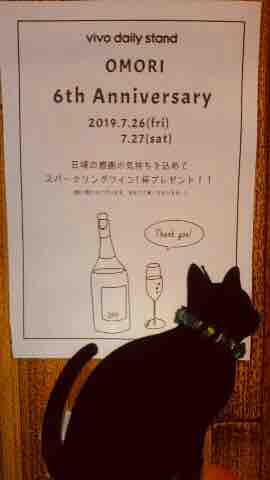 vivo daily stand
OMORI
6th Anniversary
2019.7.26(fri)
7.27(sat)
日頃の感謝の気持ちを込めて
スパークリングワイン1杯プレゼント！！
Thank you!